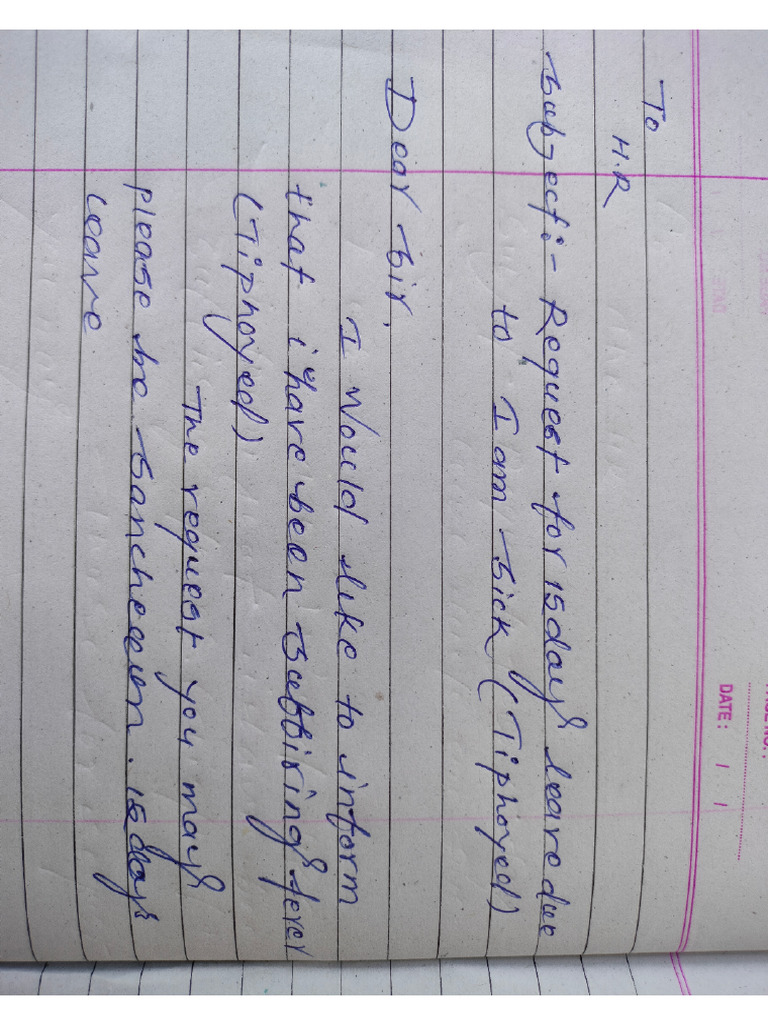 PAGE NO.:
DATE: / /
To
H.R
Subject:- Request for 15 days leave due
to I am sick (Tiphoyed)
Dear sir,
I would like to inform
that i have been subbiring fever
(Tiphoyed)
The request you may
please be sancheoun. 15 days
leave